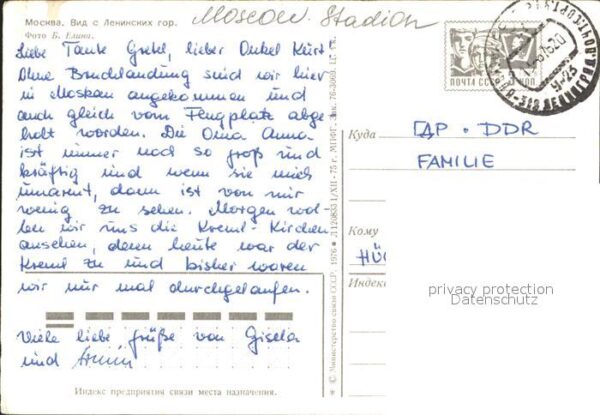 Москва. Вид с Ленинских гор.
Фото Б. Елина.
Moscow. Stadion
Liebe Tante Gretel, lieber Onkel Kurt,
Ohne Bruchlandung sind wir hier
in Moskau angekommen und
auch gleich vom Flugplatz abge
holt worden. Die Oma Anna
ist immer noch so groß und
kräftig und wenn sie mich
umarmt, dann ist von mir
wenig zu sehen. Morgen wol-
len wir uns die Kreml-Kirchen
ansehen, denn heute war der
Kreml zu und bisher waren
wir nur mal durchgelaufen.
Viele liebe Grüße von Gisela
und
Индекс предприятия связи места назначения.
© Министерство связи СССР. 1976
ПОЧТА СССР
Куда
ГДР · DDR
FAMILIE
Кому
HÜ
Индекс
privacy protection
Datenschutz